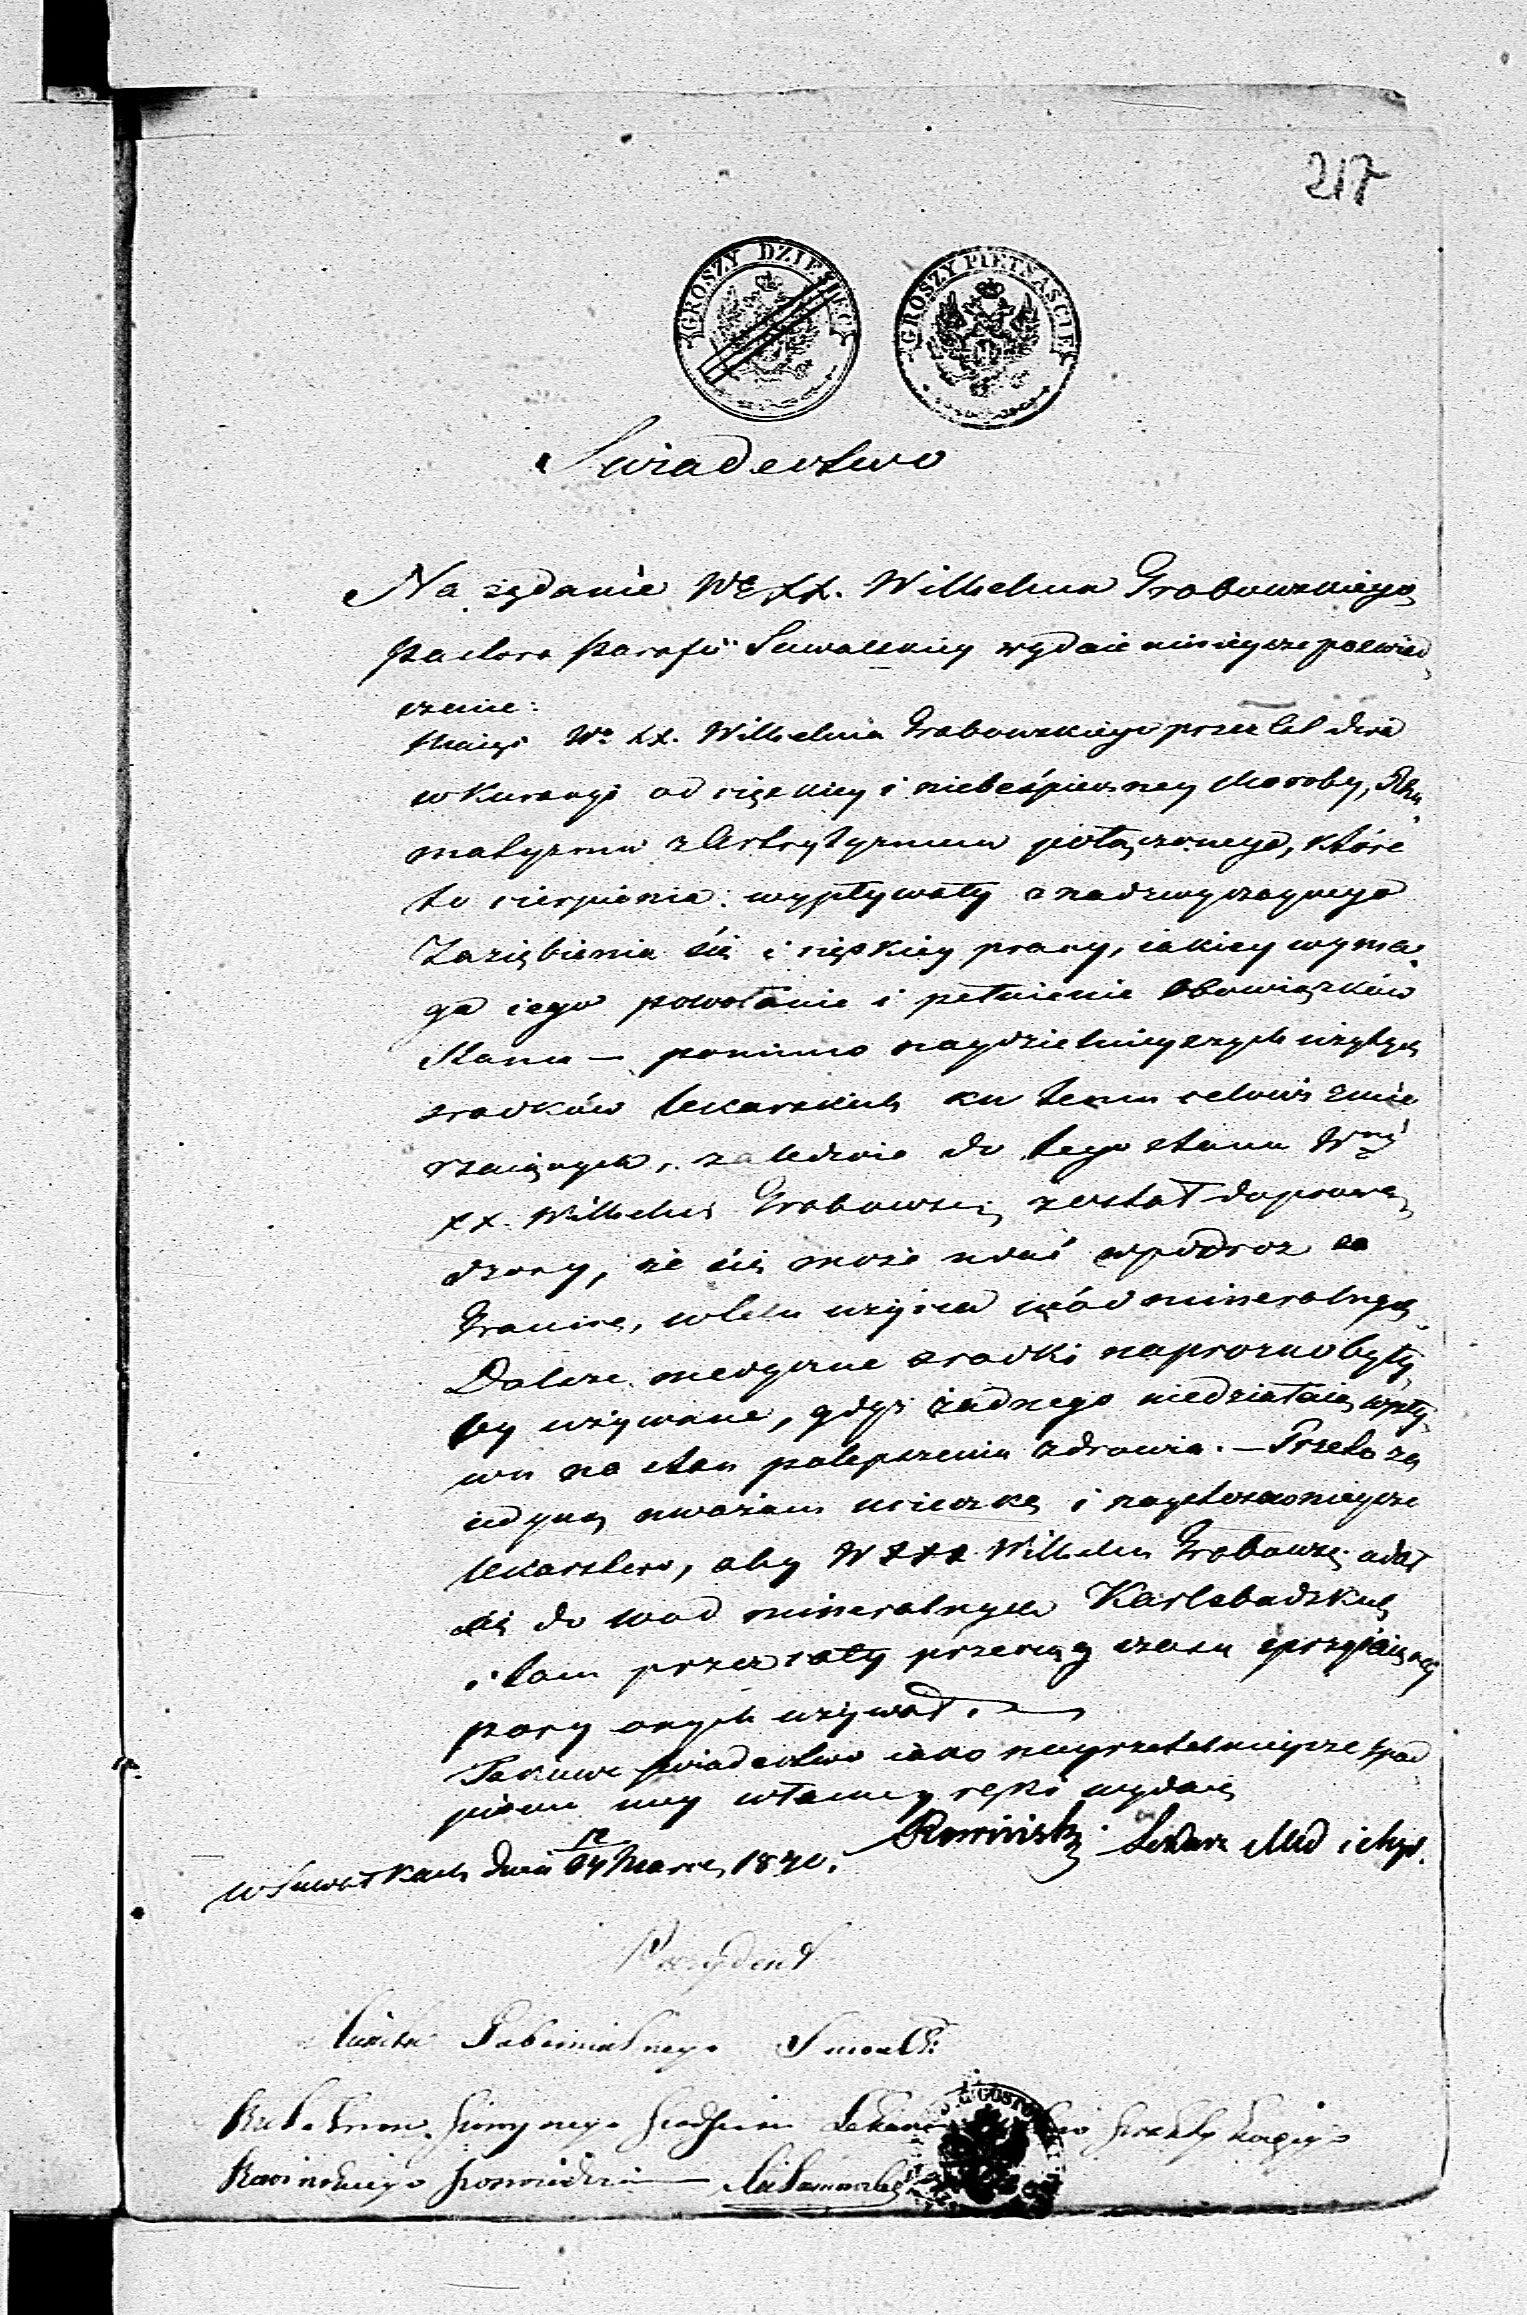 217
GROSZY DZIESIĘĆ
GROSZY PIETNAŚCIE
Swiadectwo
Na żądanie WgoXX. Wilhelma Grabowskiego
Pastora Parafii Suwalskiey wydaie ninieysze poswiad
czenie:
Maiąc Wo XX. Wilhelma Grabowskiego przez lat dwa
w Kuracyi od ciężkiey i niebeśpieczney choroby, Reu
matyzmu z Artrytyzmem połączonego, które
to cierpienia: wypływały z nadzwyczaynego
Zaziębienia się i ciężkiey pracy, iakiey wyma
ga iego powołanie i pełnienie Obowiązków
Stanu — pomimo naydzielnieyszych użytych
srodków lekarskich ku temu celowi zmie
rzaiących, zaledwie do tego stanu Wny
XX. Wilhelm Grabowski został doprowa
dzony, że się może udać w podroz za
Granicę, w celu użycia wód mineralnych
Dalsze medyczne srodki naprozno były
by używane, gdyż żadnego niedziałaią wpły
wu na stan polepszenia zdrowia. — Przeto za
iedyną uważam ucieczkę i naystosownieysze
lekarstwo, aby W XX Wilhelm Grabowski udał
się do wod mineralnych Karlsbadzkich
i tam przez cały przeciąg czasu sprzyiaiącey
pory onych używał.
Takowe swiadectwo iako nayrzetelnieysze pod
pisem mey własney ręki wydaię
w Suwałkach dnia 12/24 Marca 1840. Lekarz Med i
Prezydent
Miasta Gubernialnego Suwałk
Lekarza
poswiadcza